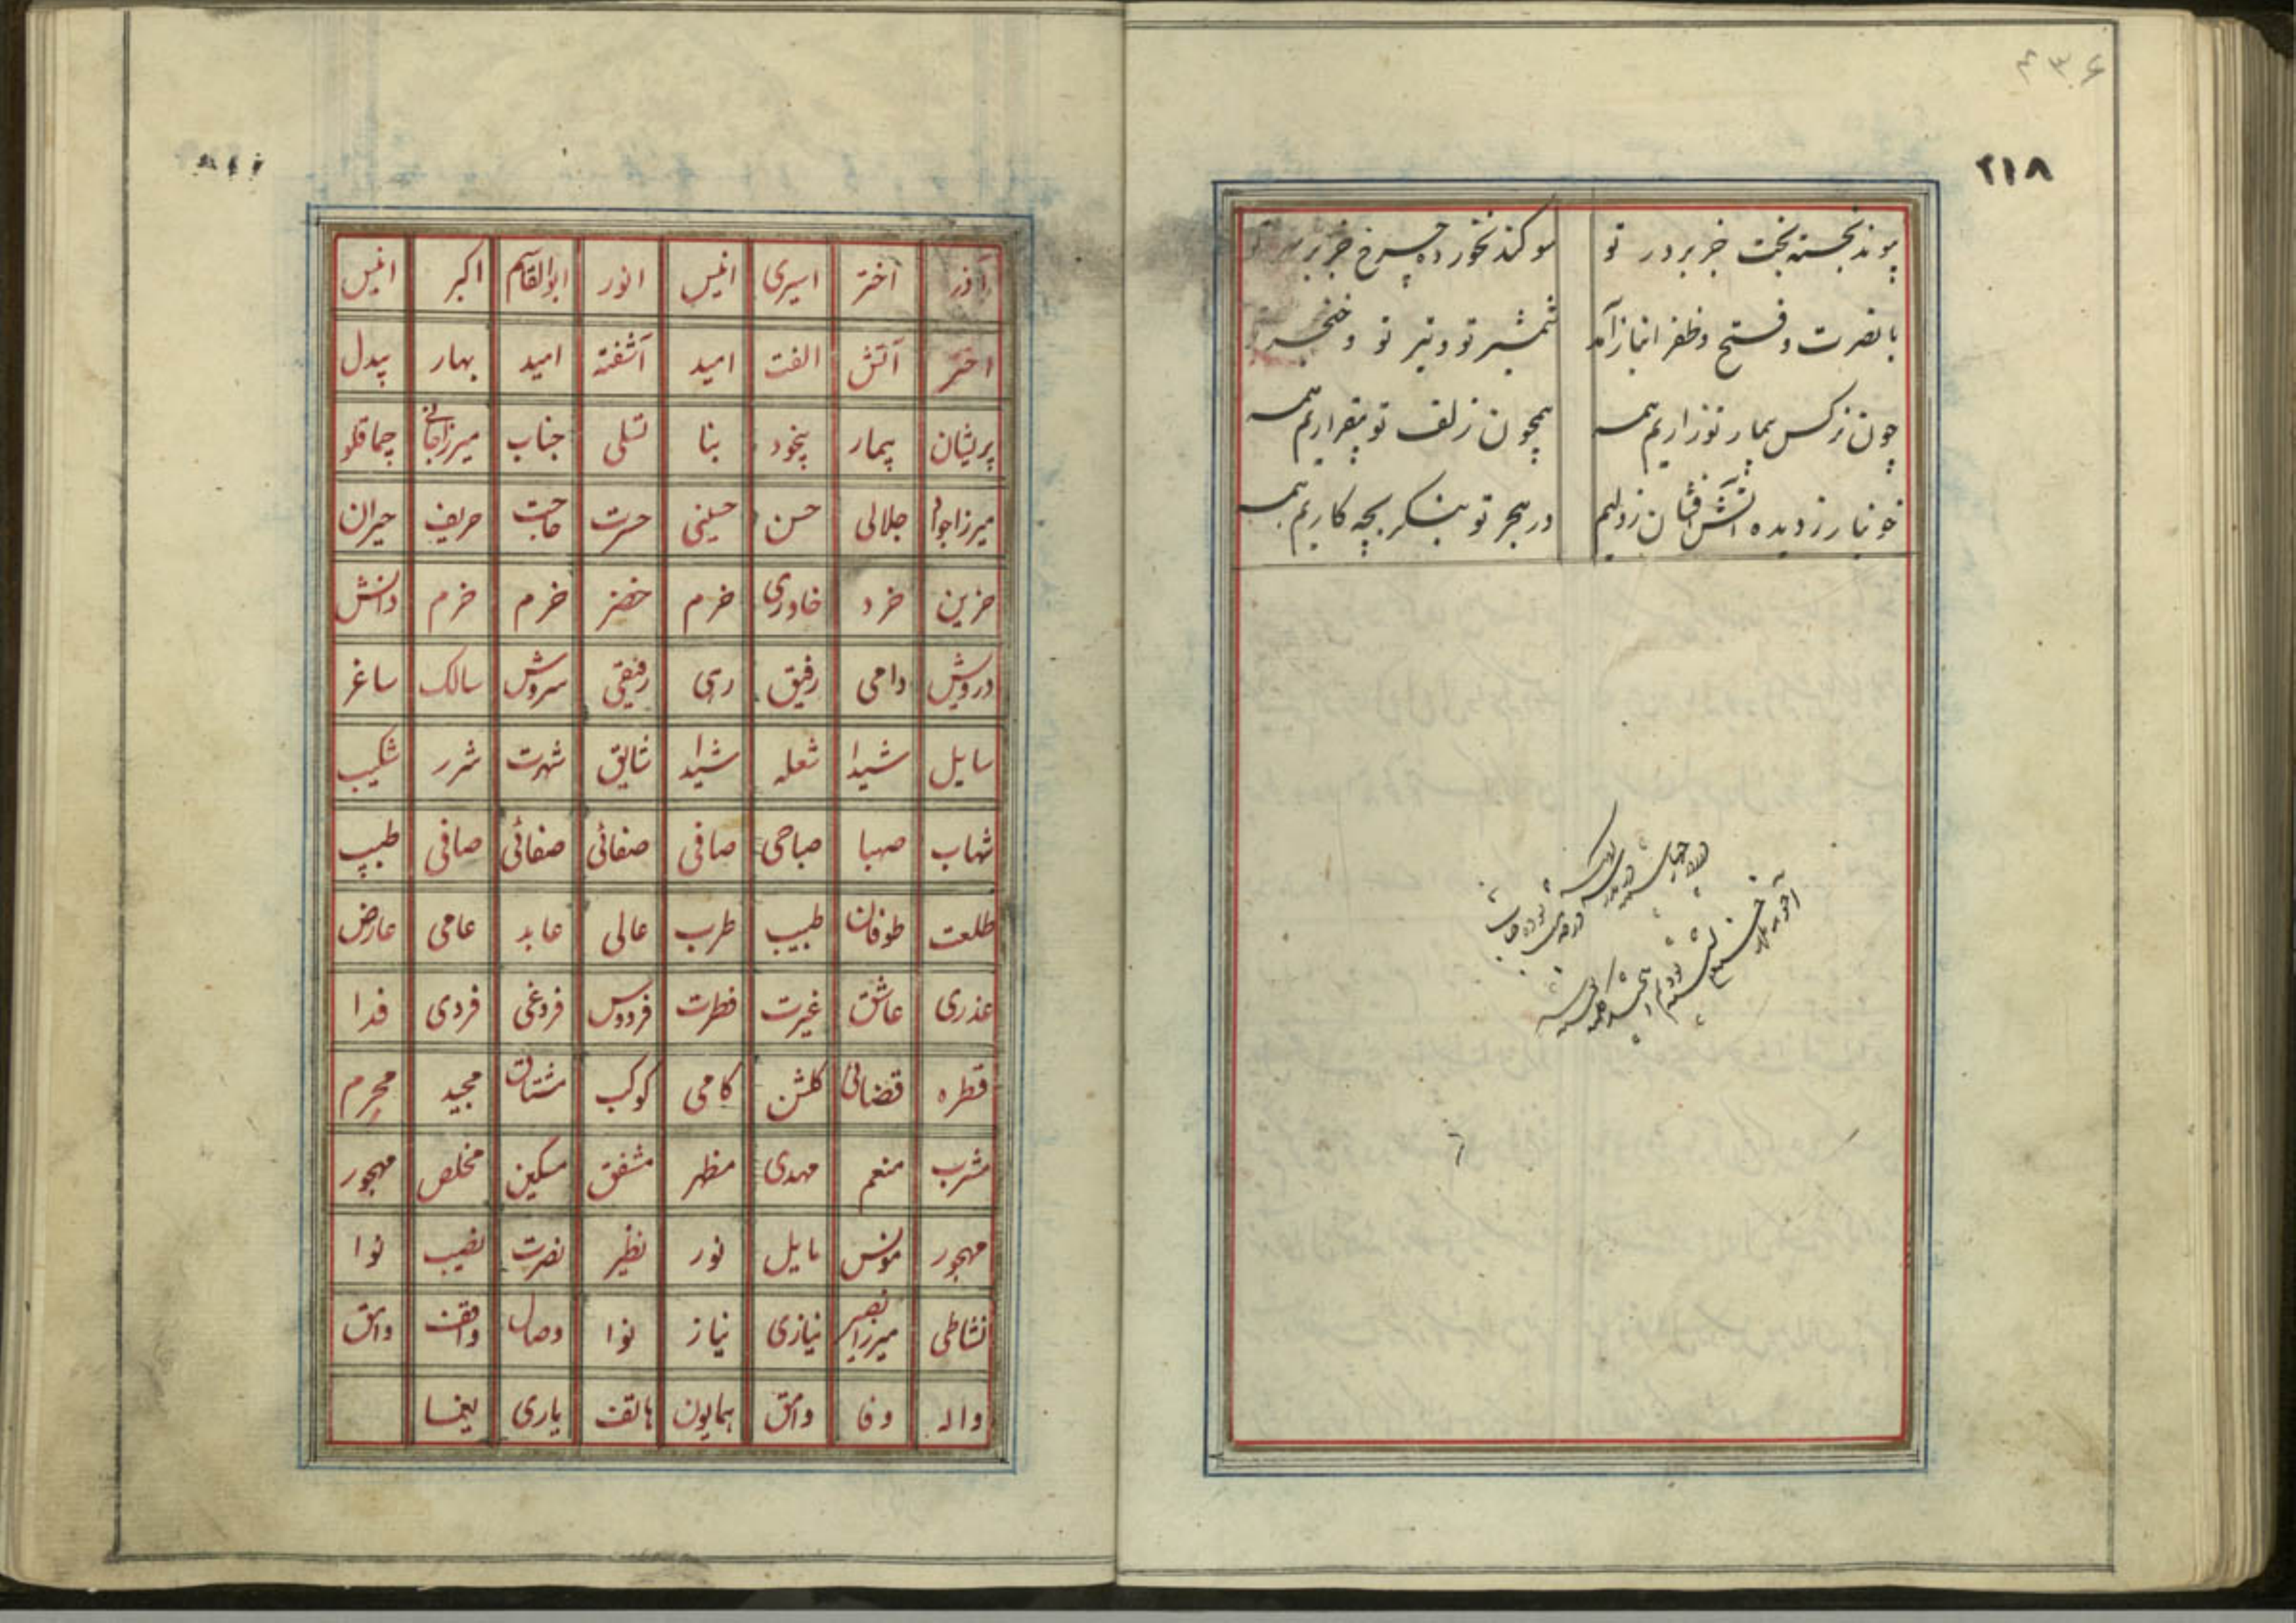 ۴۳۶
۲۱۸
پیوند نجسته بخت جز بر در تو سوگند نخورده چرخ جز بر سر تو
با نصرت و فتح و ظفر انباز آمد شمشیر تو و تیر تو و خنجر تو
چون نرکس بیمار تو زاریم همه همچون زلف تو بیقراریم همه
خونبار ز دیده آتش افشان ز دلیم در هجر تو بنکر بچه کاریم همه
آذر اختر اسیری انیس انور ابوالقاسم اکبر انیس
اختر آتش الفت امید آشفته امید بهار بیدل
پریشان بیمار بیخود بنا تسلی جناب میرزا جانی چماقلو
میرزا جواد جلالی حسن حسینی حسرت حاجت حریف حیران
حزین خرد خاوری خرم خضر خرم خرم دانش
درویش دامی رفیق رهی رفیقی سروش سالک ساغر
سایل شیدا شعله شیدا شایق شهرت شرر شکیب
شهاب صهبا صباحی صافی صفائی صفائی صافی طبیب
طلعت طوفان طبیب طرب عالی عابد عامی عارض
عذری عاشق غیرت فطرت فردوس فروغی فردی فدا
قطره قضائی کلشن کامی کوکب مشتاق مجید محرم
مشرب منعم مهدی مظهر مشفق مسکین مخلص مهجور
مهجور مونس مایل نور نظیر نصرت نصیب نوا
نشاطی میرزا نصیر نیازی نیاز نوا وصال واقف وامق
واله وفا وامق همایون هاتف یاری یغما